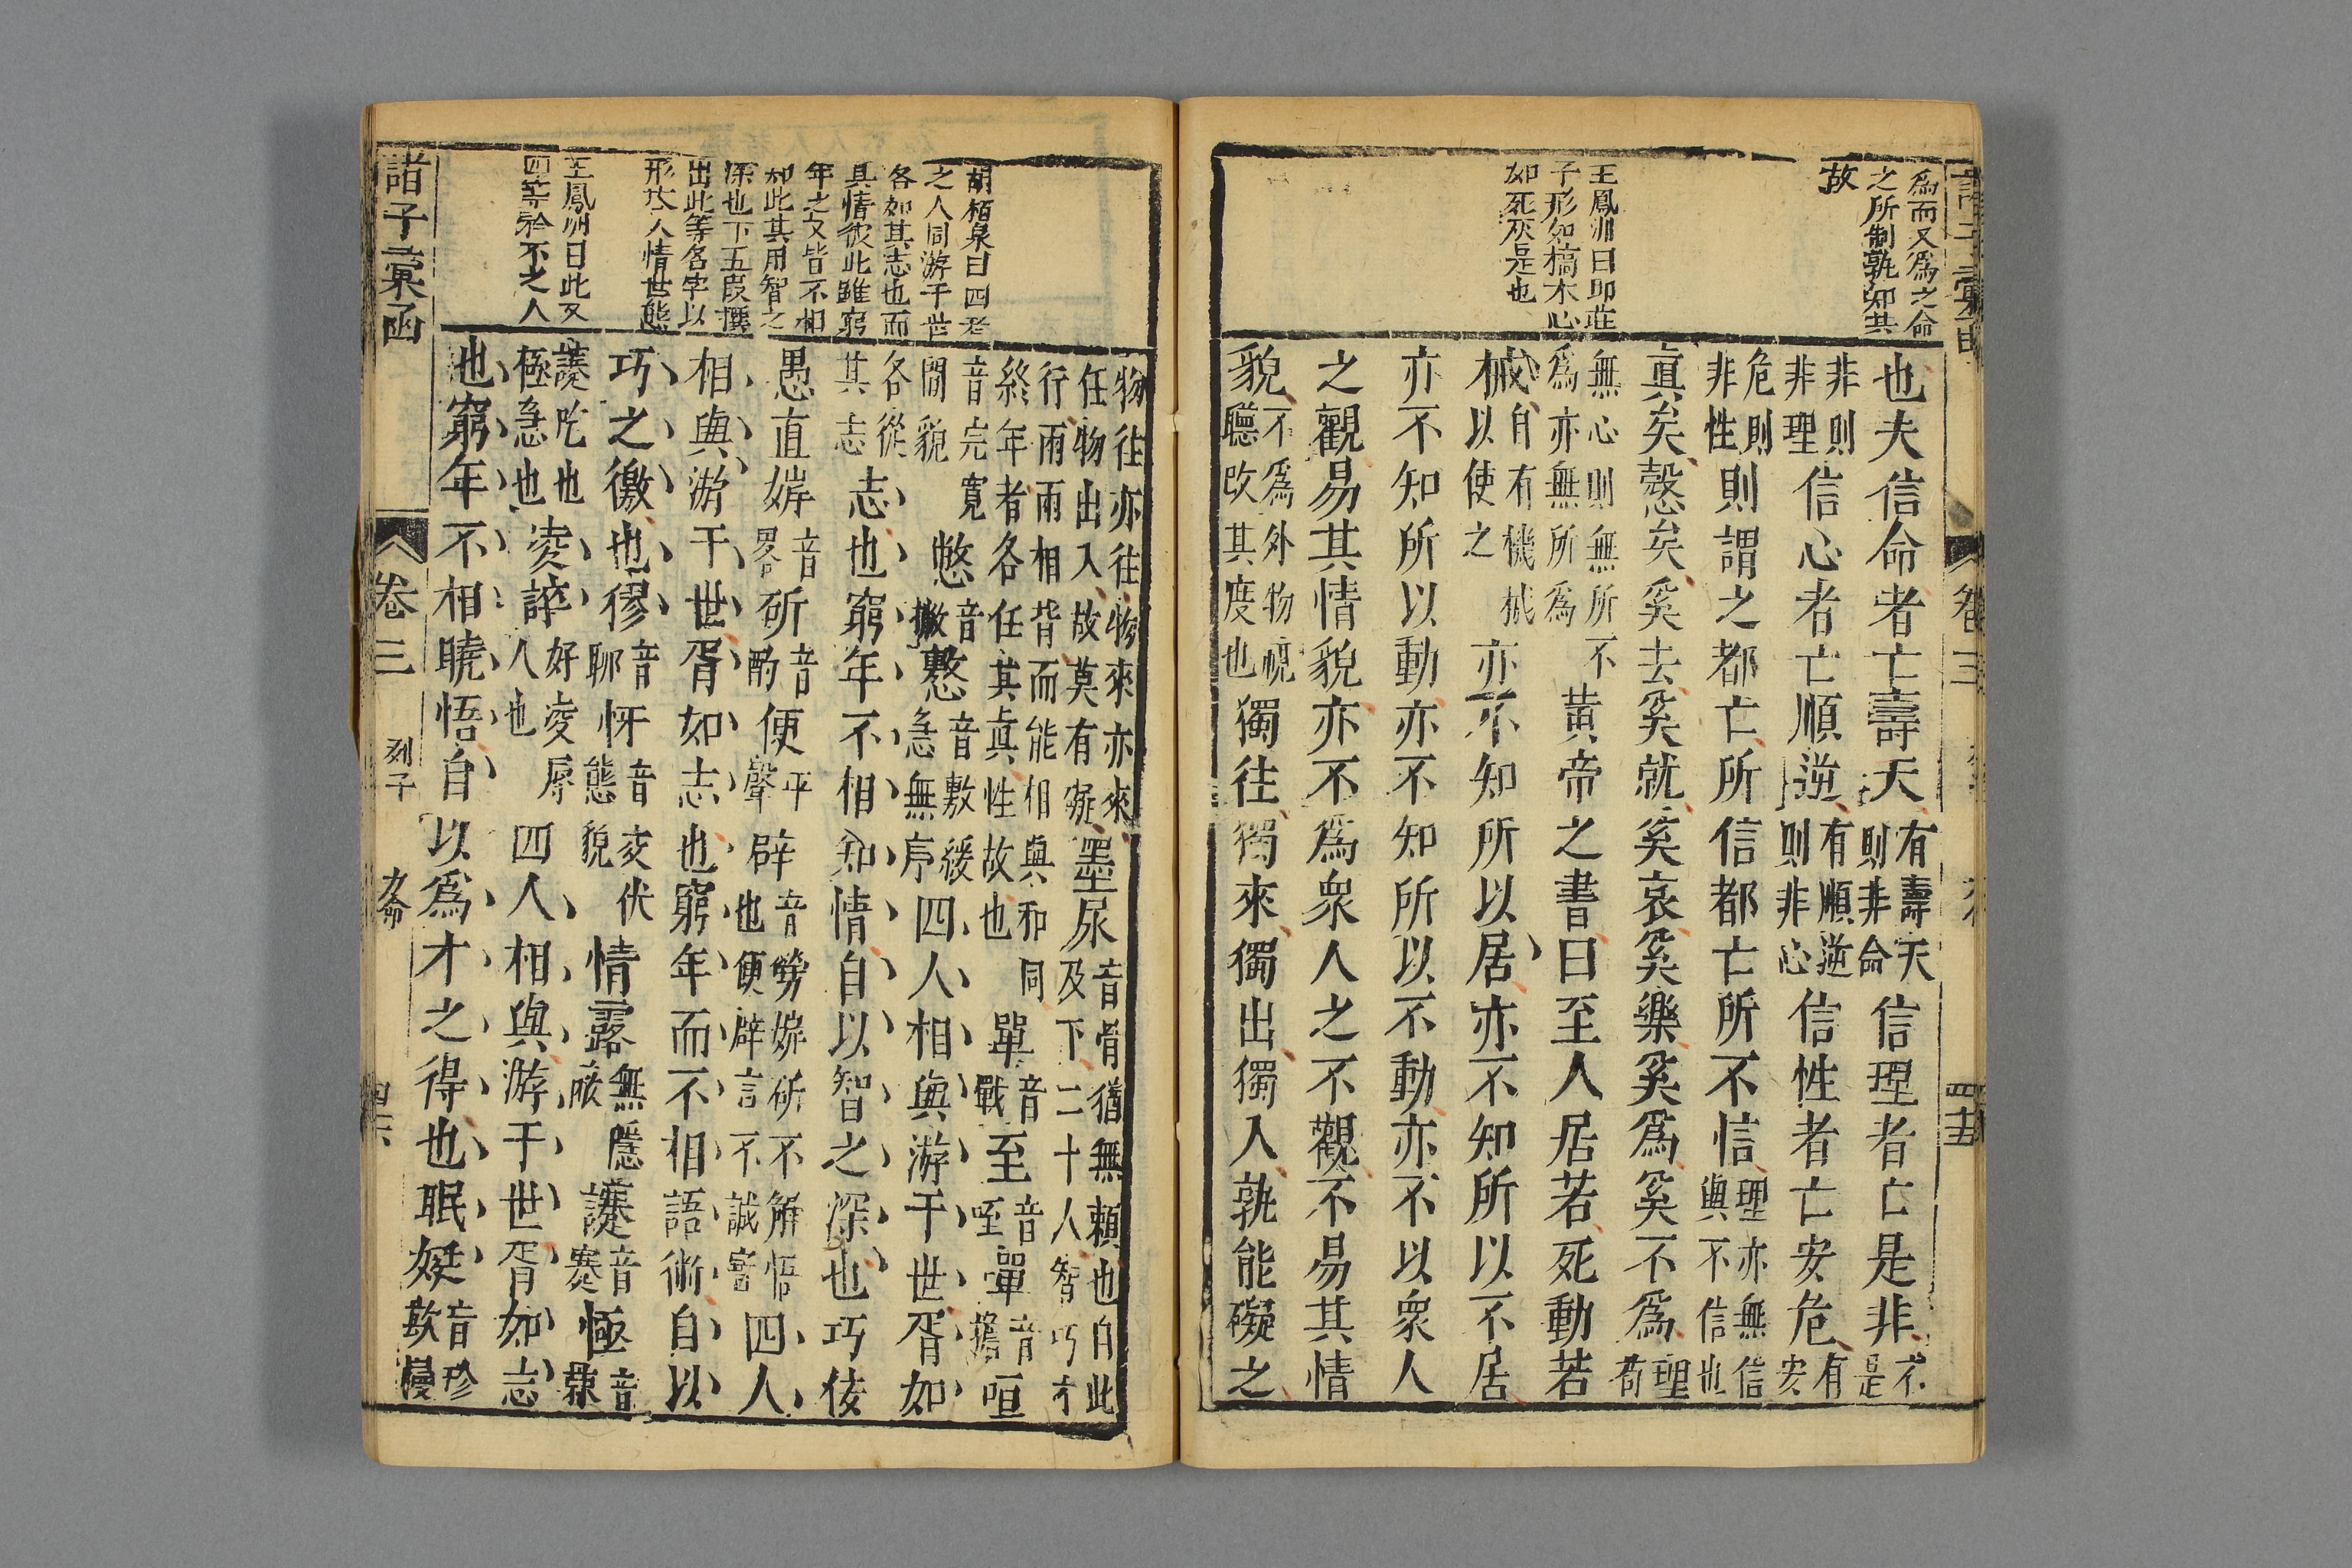 爲而又爲之命
之所制孰知其
故
王鳳洲曰即莊
子形如槁木心
如死灰是也
也夫信命者亡壽夭有壽夭則非命信理者亡是非有是
非則非理信心者亡順逆有順逆則非心信性者亡安危有安
危則非性則謂之都亡所信都亡所不信理亦無信與不信也
眞矣慤矣奚去奚就奚哀奚樂奚爲奚不爲理苟
無心則無所不爲亦無所爲黃帝之書曰至人居若死動若
械自有機械以使之亦不知所以居亦不知所以不居
亦不知所以動亦不知所以不動亦不以衆人
之觀易其情貌亦不爲衆人之不觀不易其情
貌不爲外物視聽改其度也獨往獨來獨出獨入孰能礙之
卷三
四十五
胡栢泉曰四者
之人同游于世
各如其志也而
其情彼此雖窮
年之久皆不相
如此其用智之
深也下五段撰
出此等名字以
形容人情世態
王鳳洲曰此又
四等矜不之人
物往亦往物來亦來任物出入故莫有凝墨尿音眉猶無賴也自此及下二十人智巧才
行雨雨相背而能相與和同終年者各任其眞性故也單音戰至音咥嘽音擔咺
音完寬閒貌憋音撇懯音敷緩急無序四人相與游于世胥如
各從其志志也窮年不相知情自以智之深也巧佞
愚直婩音畧斫音酌便平聲辟音嫪婩斫不解悟也便辟言不誠寔四人
相與游于世胥如志也窮年而不相語術自以
巧之微也㺒音聊㤉音態㐲伏貌情露無隱蔽𧮈音蹇極音棘
讓吃也極急也凌誶好凌辱人也四人相與游于世胥如志
也窮年不相曉悟自以爲才之得也眠娗音珍欺慢
諸子彙函
卷三
列子
四十六